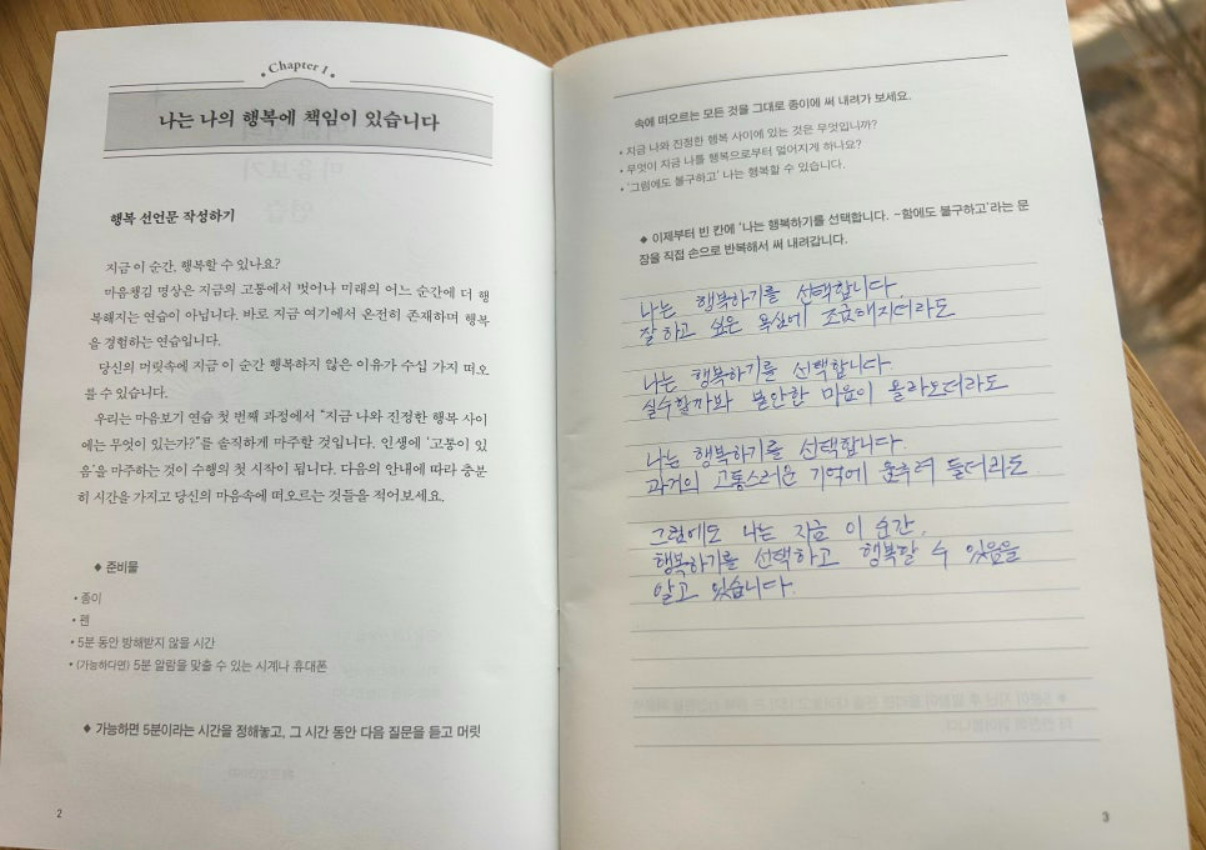 Chapter 1
나는 나의 행복에 책임이 있습니다
행복 선언문 작성하기
지금 이 순간, 행복할 수 있나요?
마음챙김 명상은 지금의 고통에서 벗어나 미래의 어느 순간에 더 행
복해지는 연습이 아닙니다. 바로 지금 여기에서 온전히 존재하며 행복
을 경험하는 연습입니다.
당신의 머릿속에 지금 이 순간 행복하지 않은 이유가 수십 가지 떠오
를 수 있습니다.
우리는 마음보기 연습 첫 번째 과정에서 “지금 나와 진정한 행복 사이
에는 무엇이 있는가?”를 솔직하게 마주할 것입니다. 인생에 ‘고통이 있
음’을 마주하는 것이 수행의 첫 시작이 됩니다. 다음의 안내에 따라 충분
히 시간을 가지고 당신의 마음속에 떠오르는 것들을 적어보세요.
◆ 준비물
• 종이
• 펜
• 5분 동안 방해받지 않을 시간
• (가능하다면) 5분 알람을 맞출 수 있는 시계나 휴대폰
◆ 가능하면 5분이라는 시간을 정해놓고, 그 시간 동안 다음 질문을 듣고 머릿
2
속에 떠오르는 모든 것을 그대로 종이에 써 내려가 보세요.
• 지금 나와 진정한 행복 사이에 있는 것은 무엇입니까?
• 무엇이 지금 나를 행복으로부터 멀어지게 하나요?
• ‘그럼에도 불구하고’ 나는 행복할 수 있습니다.
◆ 이제부터 빈 칸에 ‘나는 행복하기를 선택합니다. -함에도 불구하고’라는 문
장을 직접 손으로 반복해서 써 내려갑니다.
나는 행복하기를 선택합니다.
잘하고 싶은 욕심에 조급해지더라도
나는 행복하기를 선택합니다.
실수할까봐 불안한 마음이 올라오더라도
나는 행복하기를 선택합니다.
과거의 고통스러운 기억에 움츠려 들더라도
그럼에도 나는 지금 이 순간,
행복하기를 선택하고 행복할 수 있음을
알고 있습니다.
3